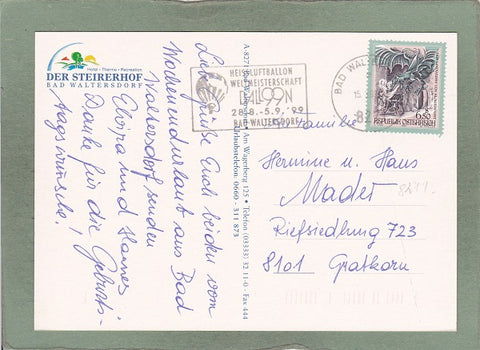 Hotel • Therme • Recreation
DER STEIRERHOF
BAD WALTERSDORF
Liebe Grüße Euch beiden vom
Wochenendurlaub aus Bad
Waltersdorf senden
Elvira und Hannes!
Danke für die Geburts-
tagswünsche!
Am Wagerberg 125 • Telefon (03333) 32 11-0 • Fax 444
Urlaubstelefon: 0660 - 311 873
HEISSLUFTBALLON
WELTMEISTERSCHAFT
BALL99N
28.8.-5.9.'99
BAD WALTERSDORF
BAD WAL
REPUBLIK ÖSTERREICH
Familie
Hermine u. Hans
Mader
Riefsiedlung 723
8101 Gratkorn